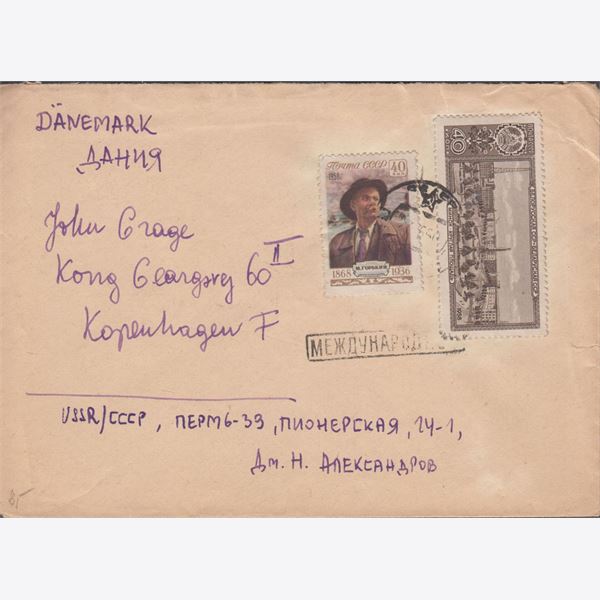 DÄNEMARK
ДАНИЯ
Почта СССР 40 коп
1958
М. ГОРЬКИЙ
1868 1936
40
John Grage
Kong Georgsvej 60 II
Kopenhagen F
МЕЖДУНАРОД
USSR/СССР, ПЕРМЬ-33, ПИОНЕРСКАЯ, 14-1,
Дм. Н. АЛЕКСАНДРОВ